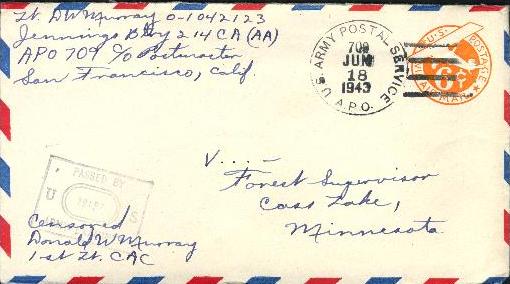 Lt. DW Murray O-1042123
Jennings Btry 214 CA (AA)
APO 709 c/o Postmaster
San Francisco, Calif.
U.S. ARMY POSTAL SERVICE
709
JUN
18
1943
A.P.O.
U.S. POSTAGE
6¢
VIA AIR MAIL
PASSED BY
U S
V...-
Forest Supervisor
Cass Lake,
Minnesota
Censored
Donald W Murray
1st Lt. CAC